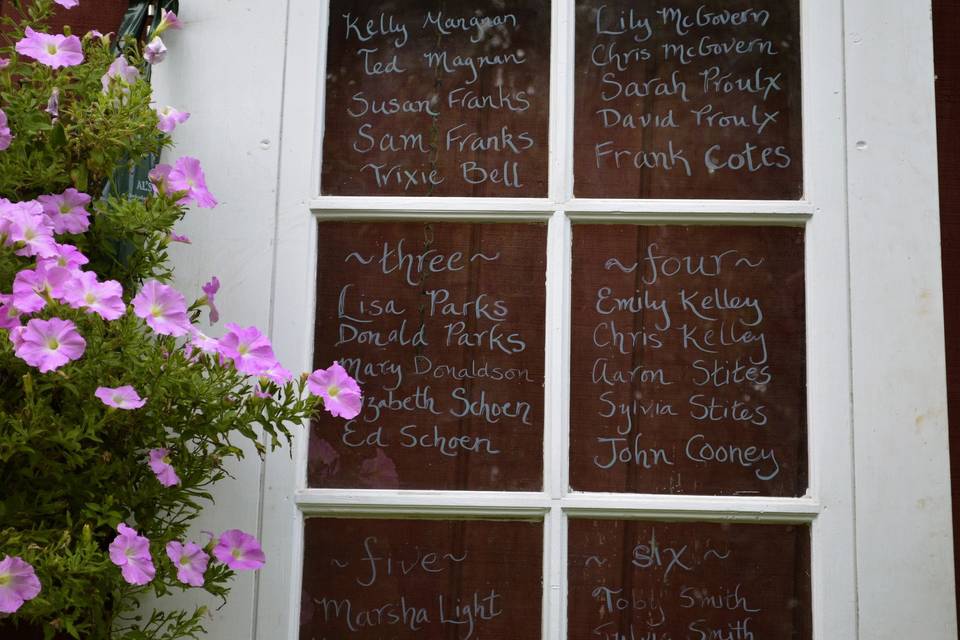 Kelly Mangnan
Ted Magnan
Susan Franks
Sam Franks
Trixie Bell
Lily McGovern
Chris McGovern
Sarah Proulx
David Proulx
Frank Cotes
~three~
Lisa Parks
Donald Parks
Mary Donaldson
Schoen
Ed Schoen
~four~
Emily Kelley
Chris Kelley
Aaron Stites
Sylvia Stites
John Cooney
~five~
Marsha Light
~six~
Toby Smith
Sylvia Smith
AL'S